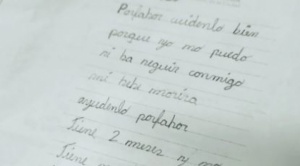 Porfabor cuidenlo bien
porque yo no puedo
ni ba seguir conmigo
mi bebe morira
ayudenlo porfabor
Tiene 2 meses y
Tiene